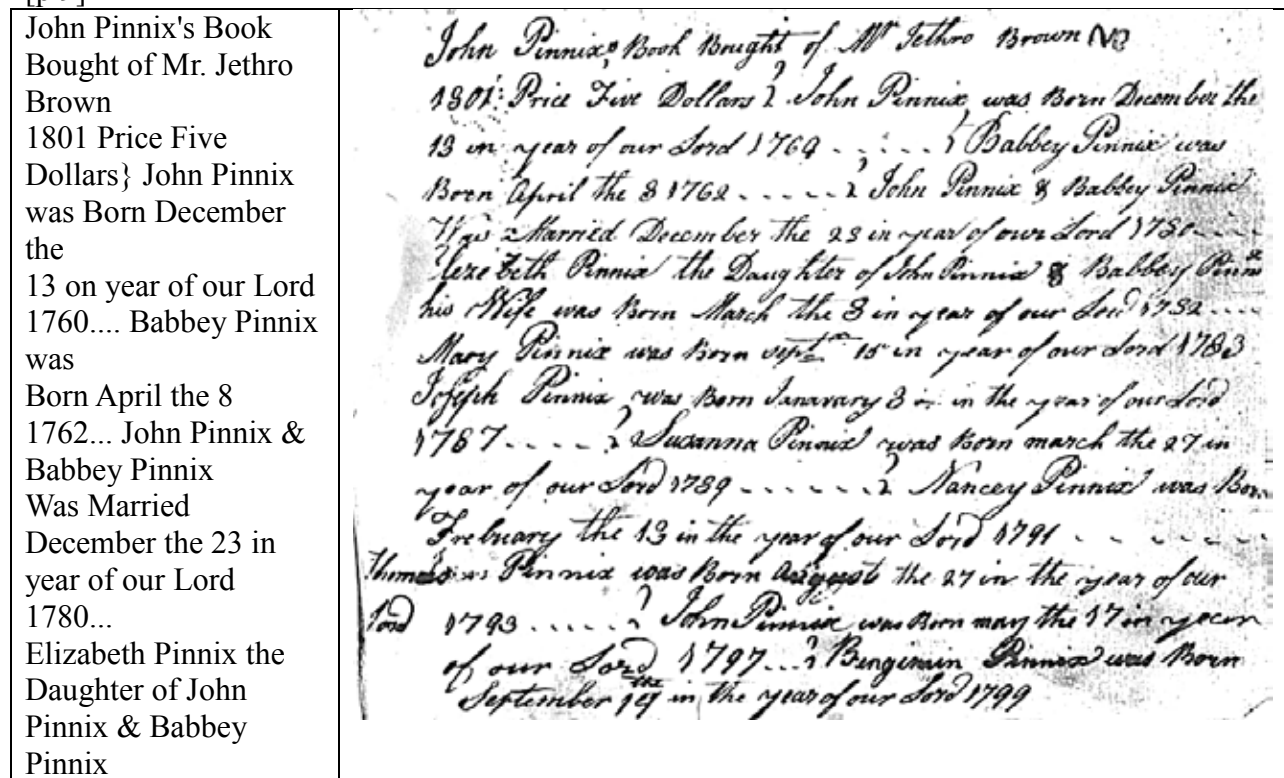 John Pinnix's Book
Bought of Mr. Jethro
Brown
1801 Price Five
Dollars} John Pinnix
was Born December
the
13 on year of our Lord
1760.... Babbey Pinnix
was
Born April the 8
1762... John Pinnix &
Babbey Pinnix
Was Married
December the 23 in
year of our Lord
1780...
Elizabeth Pinnix the
Daughter of John
Pinnix & Babbey
Pinnix
John Pinnixs Book Bought of Mr Jethro Brown
1801: Price Five Dollars } John Pinnix was Born December the
13 in year of our Lord 1760 - - . . - } Babbey Pinnix was
Born April the 8 1762 - - - - - } John Pinnix & Babbey Pinnix
Was Married December the 23 in year of our Lord 1780 - - - -
Elezebeth Pinnix the Daughter of John Pinnix & Babbey Pinnix
his Wife was Born March the 8 in year of our Lord 1782 - - - -
Mary Pinnix was Born Sept 15 in year of our Lord 1783
Joseph Pinnix was Born Janavary 3 in the year of our Lord
1787 - - - - - } Susanna Pinnix was Born march the 27 in
year of our Lord 1789 - - - - - - } Nancey Pinnix was Born
Frebuary the 13 in the year of our Lord 1791 - - - - - -
Thomas Pinnix was Born August the 27 in the year of our
Lord 1793 - - - - - } John Pinnix was Born may the 17 in year
of our Lord 1797 - - - } Bengimin Pinnix was Born
September 19 in the year of our Lord 1799